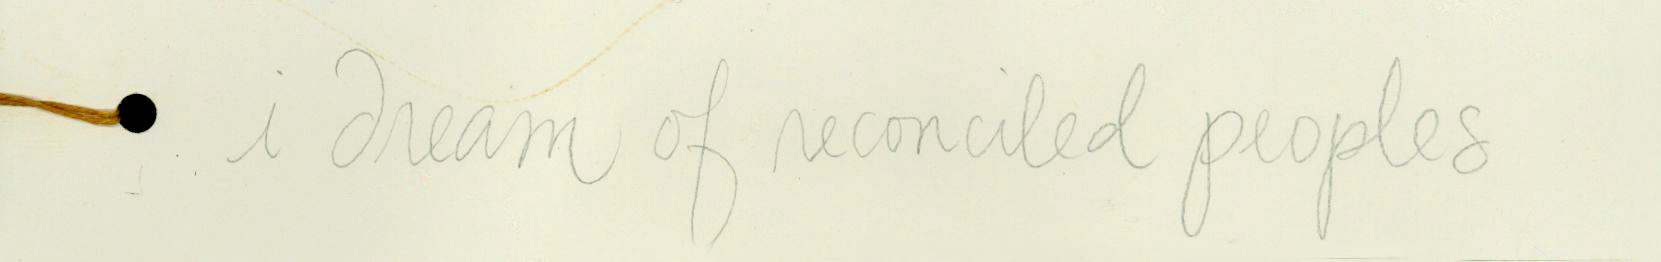 i dream of reconciled peoples